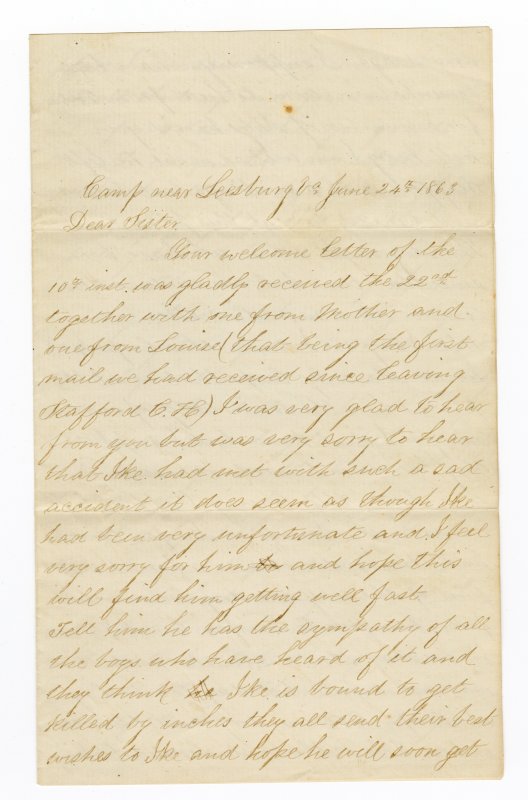 Camp near Leesburg Va June 24th 1863
Dear Sister
Your welcome letter of the
10th inst. was gladly received the 22nd
together with one from Mother and
one from Louise (that being the first
mail we had received since leaving
Stafford C. H.) I was very glad to hear
from you but was very sorry to hear
that Ike had met with such a sad
accident it does seem as though Ike
had bein very unfortunate and I feel
very sorry for him and hope this
will find him getting well fast
Tell him he has the sympathy of all
the boys who have heard of it and
they think Ike is bound to get
killed by inches they all send their best
wishes to Ike and hope he will soon get